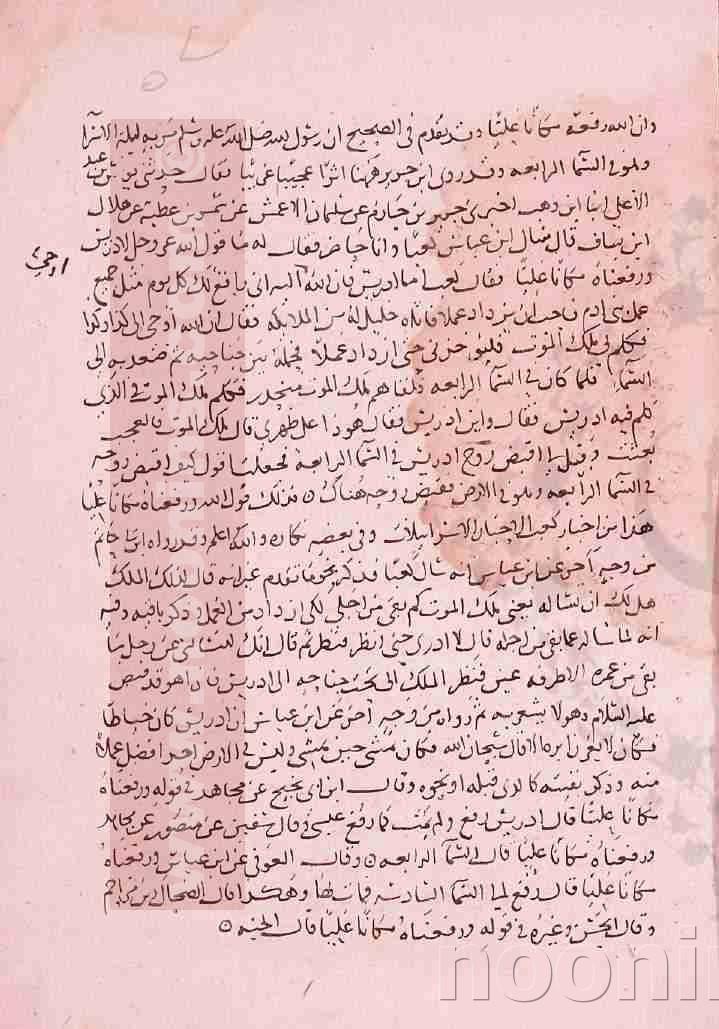 وان الله رفعه مكانا عليا وقد تقدم في الصحيح ان رسول الله صلى الله عليه وسلم مر به ليلة الاسرا
وهو في السما الرابعه وقد روى ابن جرير ههنا اثرا عجيبا غريبا فقال حدثني يونس بن عبد
الاعلى انبا ابن وهب اخبرني جرير بن حازم عن سليمان الاعمش عن شمر بن عطية عن هلال
ابن يساف قال سال ابن عباس كعبا وانا حاضر فقال له ما قول الله عز وجل لادريس
اوحى
ورفعناه مكانا عليا فقال كعب اما ادريس فان الله اليه اني رافع لك كل يوم مثل جميع
عمل بني ادم فاحب ان يزداد عملا فاتاه خليل له من الملايكه فقال ان الله أوحى الى كذا وكذا
فكلم لي ملك الموت فليؤخرني حتى ازداد عملا فحمله بين جناحيه ثم صعد به الى
السما فلما كان في السما الرابعه تلقاهم ملك الموت منحدر فكلم ملك الموت في الذي
كلمه فيه ادريس فقال واين ادريس فقال هوذا على ظهري قال ملك الموت فالعجب
بعثت وقيل لي اقبض روح ادريس في السما الرابعة فجعلت اقول كيف اقبض روحه
في السما الرابعه وهو في الارض فقبض روحه هناك فذلك قول الله ورفعناه مكانا عليا
هذا من اخبار كعب الاحبار الاسرائيليات وفي بعضه نكاره والله اعلم وقد رواه ابن ابي حاتم
من وجه آخر عن ابن عباس انه سال كعبا فذكر نحو ما تقدم غير انه قال لذلك الملك
هل لك ان تساله يعني ملك الموت كم بقي من اجلي لكي ازداد من العمل وذكر باقيه وفيه
انه لما ساله عما بقي من اجله قال لا ادري حتى انظر فنظر ثم قال انك لتسالني عن رجل ما
بقي من عمره الا طرفه عين فنظر الملك الى تحت جناحه الى ادريس فاذا هو قد قبض
عليه السلام وهو لا يشعر به ثم رواه من وجه آخر عن ابن عباس ان ادريس كان خياطا
فكان لا يغرز ابره الا قال سبحان الله فكان يمسي حين يمسي وليس في الارض احد افضل عملا
منه وذكر بقيته كالذي قبله او نحوه وقال ابن ابي نجيح عن مجاهد في قوله ورفعناه
مكانا عليا قال ادريس رفع ولم يمت كما رفع عيسى وقال سفين عن منصور عن مجاهد
ورفعناه مكانا عليا قال السما الرابعه وقال العوفي عن ابن عباس ورفعناه
مكانا عليا قال رفع الى السما السادسه فمات بها وهكذا قال الضحاك بن مزاحم
وقال الحسن وغيره في قوله ورفعناه مكانا عليا قال الجنه
noonin